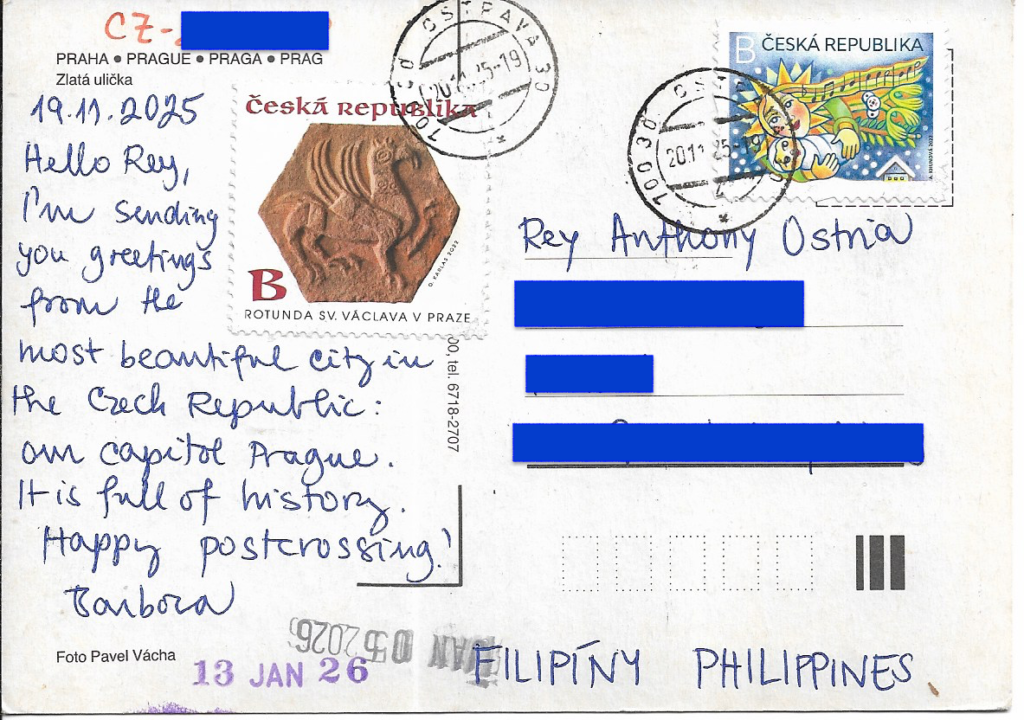 CZ-
PRAHA • PRAGUE • PRAGA • PRAG
Zlatá ulička
19.11.2025
Hello Rey,
I'm sending
you greetings
from the
most beautiful city in
the Czech Republic:
our capitol Prague.
It is full of history.
Happy postcrossing!
Barbora
Foto Pavel Vácha
13 JAN 26
JAN 05 2026
česká republika
B
ROTUNDA SV. VÁCLAVA V PRAZE
OSTRAVA 30
20.11.25-19
700 30
00, tel. 6718-2707
B ČESKÁ REPUBLIKA
700 30
20.11.25-19
Rey Anthony Ostria
FILIPÍNY PHILIPPINES